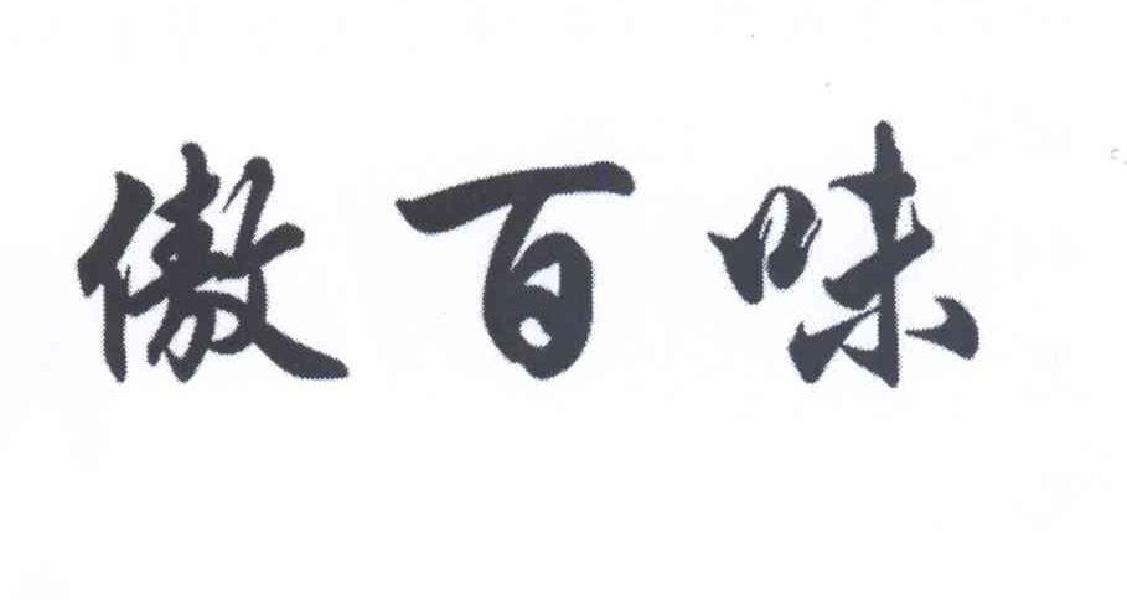 傲百味